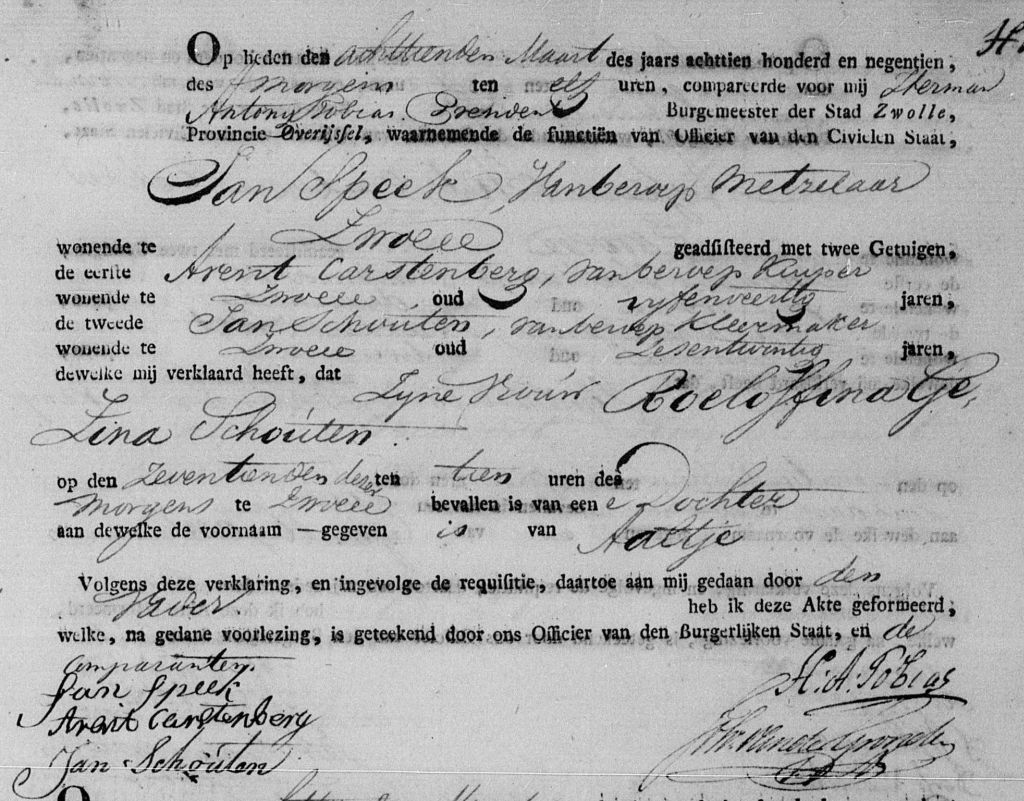 Op heden den achttienden Maart des jaars achttien honderd en negentien,
des morgens ten elf uren, compareerde voor mij Herman
Antony Tobias Burgemeester der Stad Zwolle,
Provincie Overijssel, waarnemende de functiën van Officier van den Civielen Staat,
Jan Speek, van beroep Metzelaar
Zwolle
wonende te geadsisteerd met twee Getuigen,
de eerste Arent Carstenberg, van beroep Kuyper
wonende te Zwolle oud vyfenveertig jaren,
de tweede Jan Schouten, van beroep Kleermaker
wonende te Zwolle oud Zesentwintig jaren,
dewelke mij verklaard heeft, dat Zyne Vrouw Roeloffina Ge,
Zina Schouten
op den Zeventienden dezer ten tien uren des
morgens te Zwolle bevallen is van eene Dochter
aan dewelke de voornaam — gegeven is van Aaltje
Volgens deze verklaring, en ingevolge de requisitie, daartoe aan mij gedaan door den
Vader heb ik deze Akte geformeerd,
welke, na gedane voorlezing, is geteekend door ons Officier van den Burgerlijken Staat, en de
Comparanten.
Jan Speek
H. A. Tobias
Arent Carstenberg
Jan Schouten